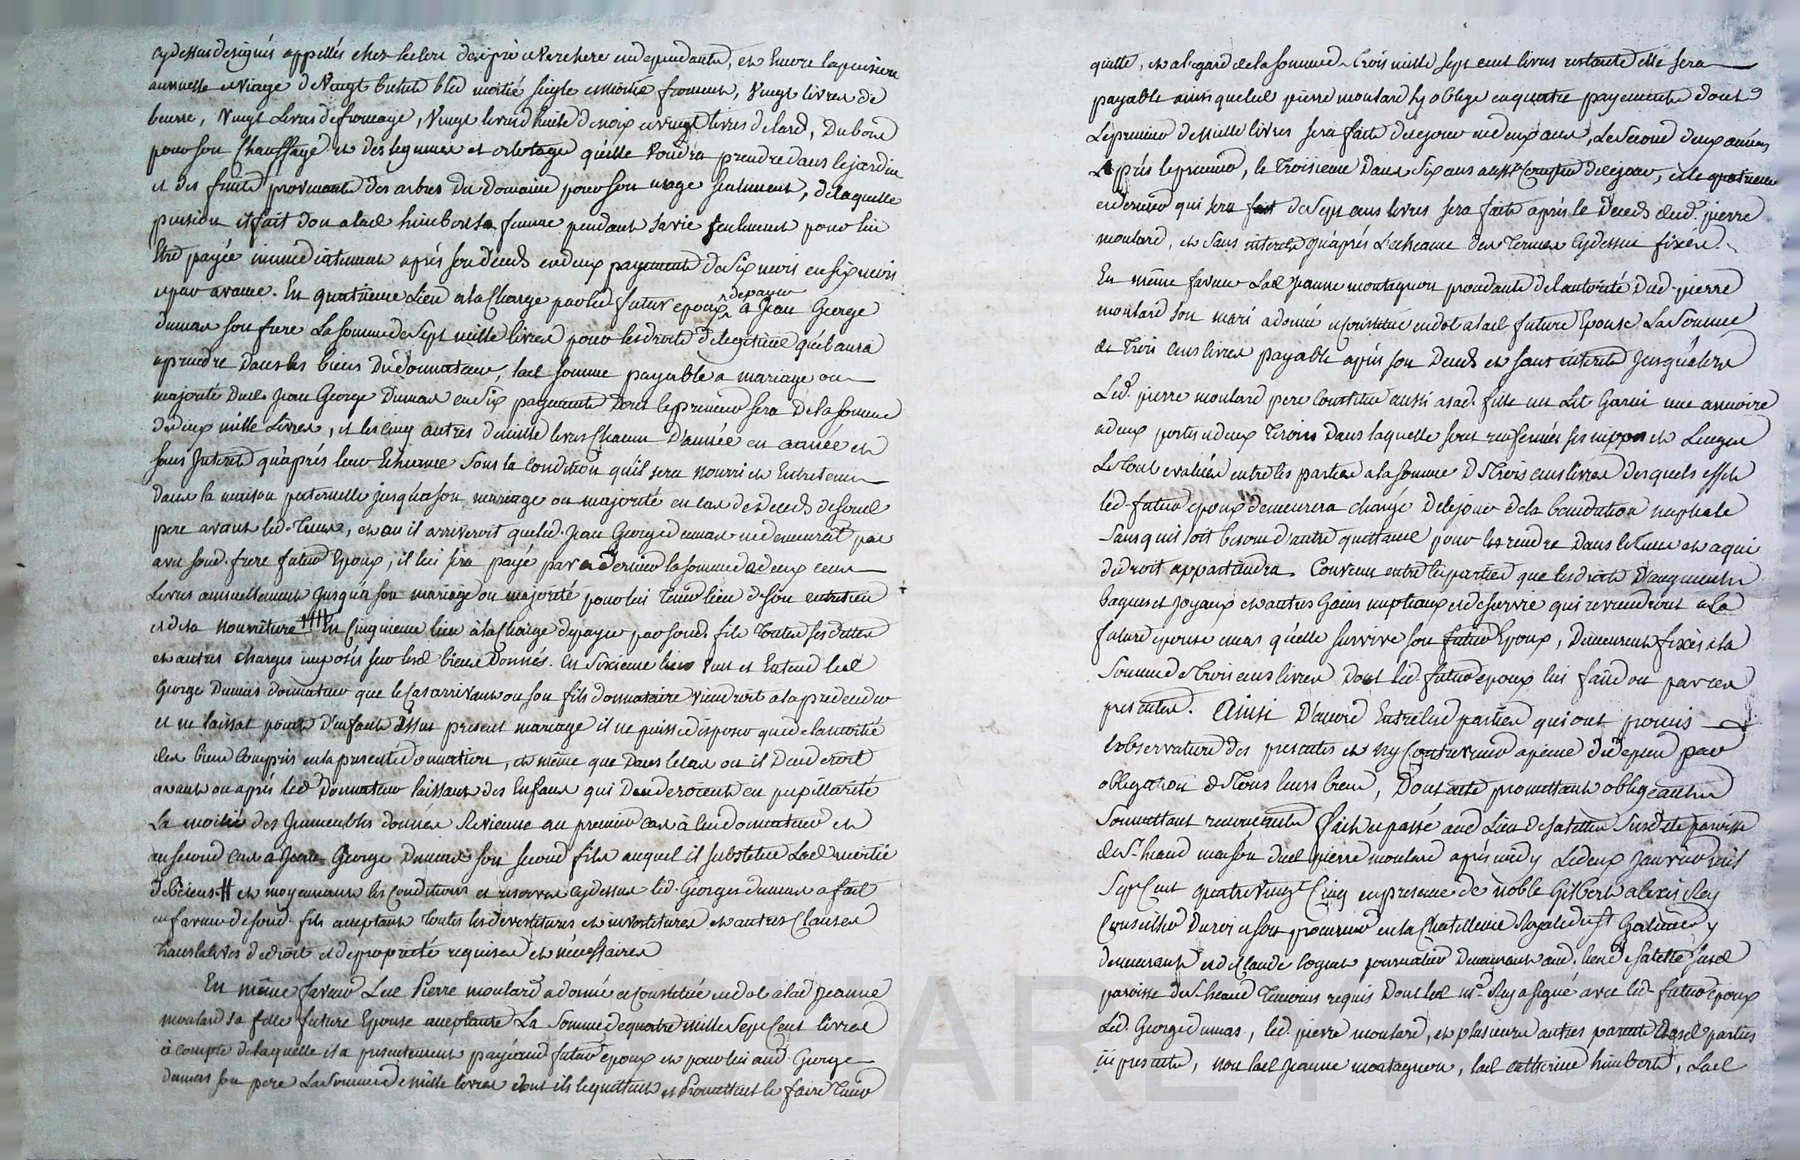 cydessus designés appellés chez leclerc desiprié et verchere independante, et encore la pension
annuelle et Viagé de Vingt bichets bled moitié seigle et moitié froment, Vingt livres de
beurre, Vingt Livres de fromage, Vingt livres d'huile de noix et vingt livres de lard, Du bois
pour son Chauffage et des legumes et ortolage qu'elle Voudra prendre dans le jardin
et des fruits provenants des arbres Du Domaine pour son usage seulement, de laquelle
pension il fait don a lad himbert sa femme pendant sa vie seulement pour lui
Etre payée immediatement aprés son decés en deux payements de six mois en six mois
et par avance. En quatrieme Lieu a la Charge par led futur epoux de payer a Jean George
dumas son frere La somme de Sept mille livres pour les droits de legitime qu'il aura
a prendre Dans les biens Dud donnateur, lad somme payable a mariage ou
majorité Dud. Jean George Dumas en Six payements Dont le premier sera De la somme
de deux mille Livres, et les cinq autres de mille livres Chacun D'année en année et
sans Interets qu'aprés leur Echeance Sous la condition qu'il sera nourri et Entretenu
dans la maison paternelle jusqu'a son mariage ou majorité en cas de deceds de sond
pere avant led. Tems, et ou il arriveroit que led. Jean George dumas ne demeurat pas
avec sond. frere futur Epoux, il lui sera payé par ce dernier la somme de deux cents
Livres annuellement Jusqu'a son mariage ou majorité pour lui Tenir lieu de son entretien
et de sa nourriture En Cinquieme lieu à la Charge de payer par sond. fils Toutes ses dettes
et autres Charges imposés sur lesd biens Donnés. En Sixieme lieu Veut et Entend led
George Dumas donnateur que le Cas arrivant ou son fils donnataire viendroit a la predeceder
et ne laissat point D'enfans Du present mariage il ne puisse disposer que de la moitié
des biens Compris en la presente donnation, et même que Dans le cas ou il Decederoit
avant ou aprés led Donnateur laissant des Enfans qui Decederoient en pupillarité
La moitié des Immeubles donnés Revienne au premier cas à lui donnateur et
au second cas a Jean George Dumas son second fils auquel il substitue Lad moitié
de biens et moyennant les Conditions et reserves cydessus led. George dumas a fait
en faveur de sond. fils acceptant toutes les devestitures et investitures et autres Clauses
translatives de droit et de propriété requises et nécessaires
En même faveur Led Pierre moulard a donné et Constitué en dot a lad Jeanne
moulard sa fille future Epouse acceptante La Somme de quatre mille Sept Cent livres
à compte de laquelle il a presentement payé aud futur epoux et pour lui aud George
dumas son pere La Somme de mille livres dont ils le quittent et Promettent le faire Tenir
quitte, et a l'egard de la somme de Trois mille sept cent livres restante elle sera
payable ainsi que led pierre moulard s'y oblige en quatre payements dont
Le premier de mille livres sera fait de ce jour en deux ans, Le Second deux années
Aprés le premier, le Troisieme Dans Six ans aussy Comptés de ce jour, et le quatrieme
et dernier qui sera de Sept cens livres sera faite aprés le Deceds dud. pierre
moulard, et Sans interets qu'aprés L'echeance des Termes Cydessus fixés.
En même faveur Lad Jeanne montagnon procedante de l'autorité Dud. pierre
moulard Son mari a donné et Constitué en dot a lad future Epouse La Somme
de Trois cens livres payable aprés son Deceds et sans interets Jusqu'alors
Led. pierre moulard pere Constitue aussi a sad. fille un Lit Garni une armoire
a deux portes et deux Tiroirs Dans laquelle sont renfermés ses nippes et Linges
Le Tout evalués entre les parties a la somme de Trois cens livres desquels effets
led. futur epoux demeurera chargé De ce jour de la benediction nuptiale
Sans qu'il soit besoin d'autre quittance pour les rendre Dans le Tems et a qui
de droit appartiendra. Convenu entre les parties que les droits D'augments
bagues et Joyaux et autres Gains nuptiaux et de survie qui reviendront a la
future epouse en cas qu'elle survive son futur Epoux, Demeurent fixés a la
Somme de Trois cens livres Dont led. futur epoux lui fait don par ces
presentes. Ainsi D'accord Entre lesd parties qui ont promis
L'observature des presentes et n'y Contrevenir a peine de depens par
obligation de Tous leurs biens, Dont acte promettant obligeant
Soumettant renonceant fait et passé aud Lieu de satettes Susdite paroisse
de St. heand maison dud pierre moulard aprés midy Le deux Janvier mil
Sept Cent quatre Vingt Cinq en presence de noble Gilbert alexis Rey
Conseiller Du roi et son procureur en la Chatellenie Royale de St Galmier y
demeurant et de Claude Cognet journalier Demeurant aud. lieu de satette susd
paroisse de St. heand Temoins requis Dont led mr. Rey a signé avec led. futur epoux
Led. George dumas, led. pierre moulard, et plusieurs autres parents desd parties
ici presents, non lad Jeanne montagnon, lad catherine himbert, Lad